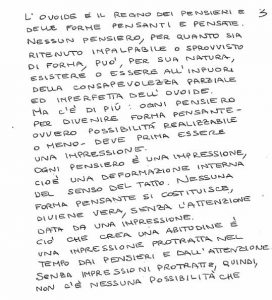 L'OVOIDE È IL REGNO DEI PENSIERI E
DELLE FORME PENSANTI E PENSATE.
NESSUN PENSIERO, PER QUANTO SIA
RITENUTO IMPALPABILE O SPROVVISTO
DI FORMA, PUO', PER SUA NATURA,
ESISTERE O ESSERE ALL'INFUORI
DELLA CONSAPEVOLEZZA PARZIALE
ED IMPERFETTA DELL'OVOIDE.
MA C'È DI PIÙ: OGNI PENSIERO
PER DIVENIRE FORMA PENSANTE-
OVVERO POSSIBILITÀ REALIZZABILE
O MENO- DEVE PRIMA ESSERE
UNA IMPRESSIONE.
OGNI PENSIERO È UNA IMPRESSIONE,
CIOÈ UNA DEFORMAZIONE INTERNA
DEL SENSO DEL TATTO. NESSUNA
FORMA PENSANTE SI COSTITUISCE,
DIVIENE VERA, SENZA L'ATTENZIONE
DATA DA UNA IMPRESSIONE.
CIÒ CHE CREA UNA ABITUDINE È
UNA IMPRESSIONE PROTRATTA NEL
TEMPO DAI PENSIERI E DALL'ATTENZIONE
SENZA IMPRESSIONI PROTRATTE, QUINDI,
NON C'È NESSUNA POSSIBILITÀ CHE
3